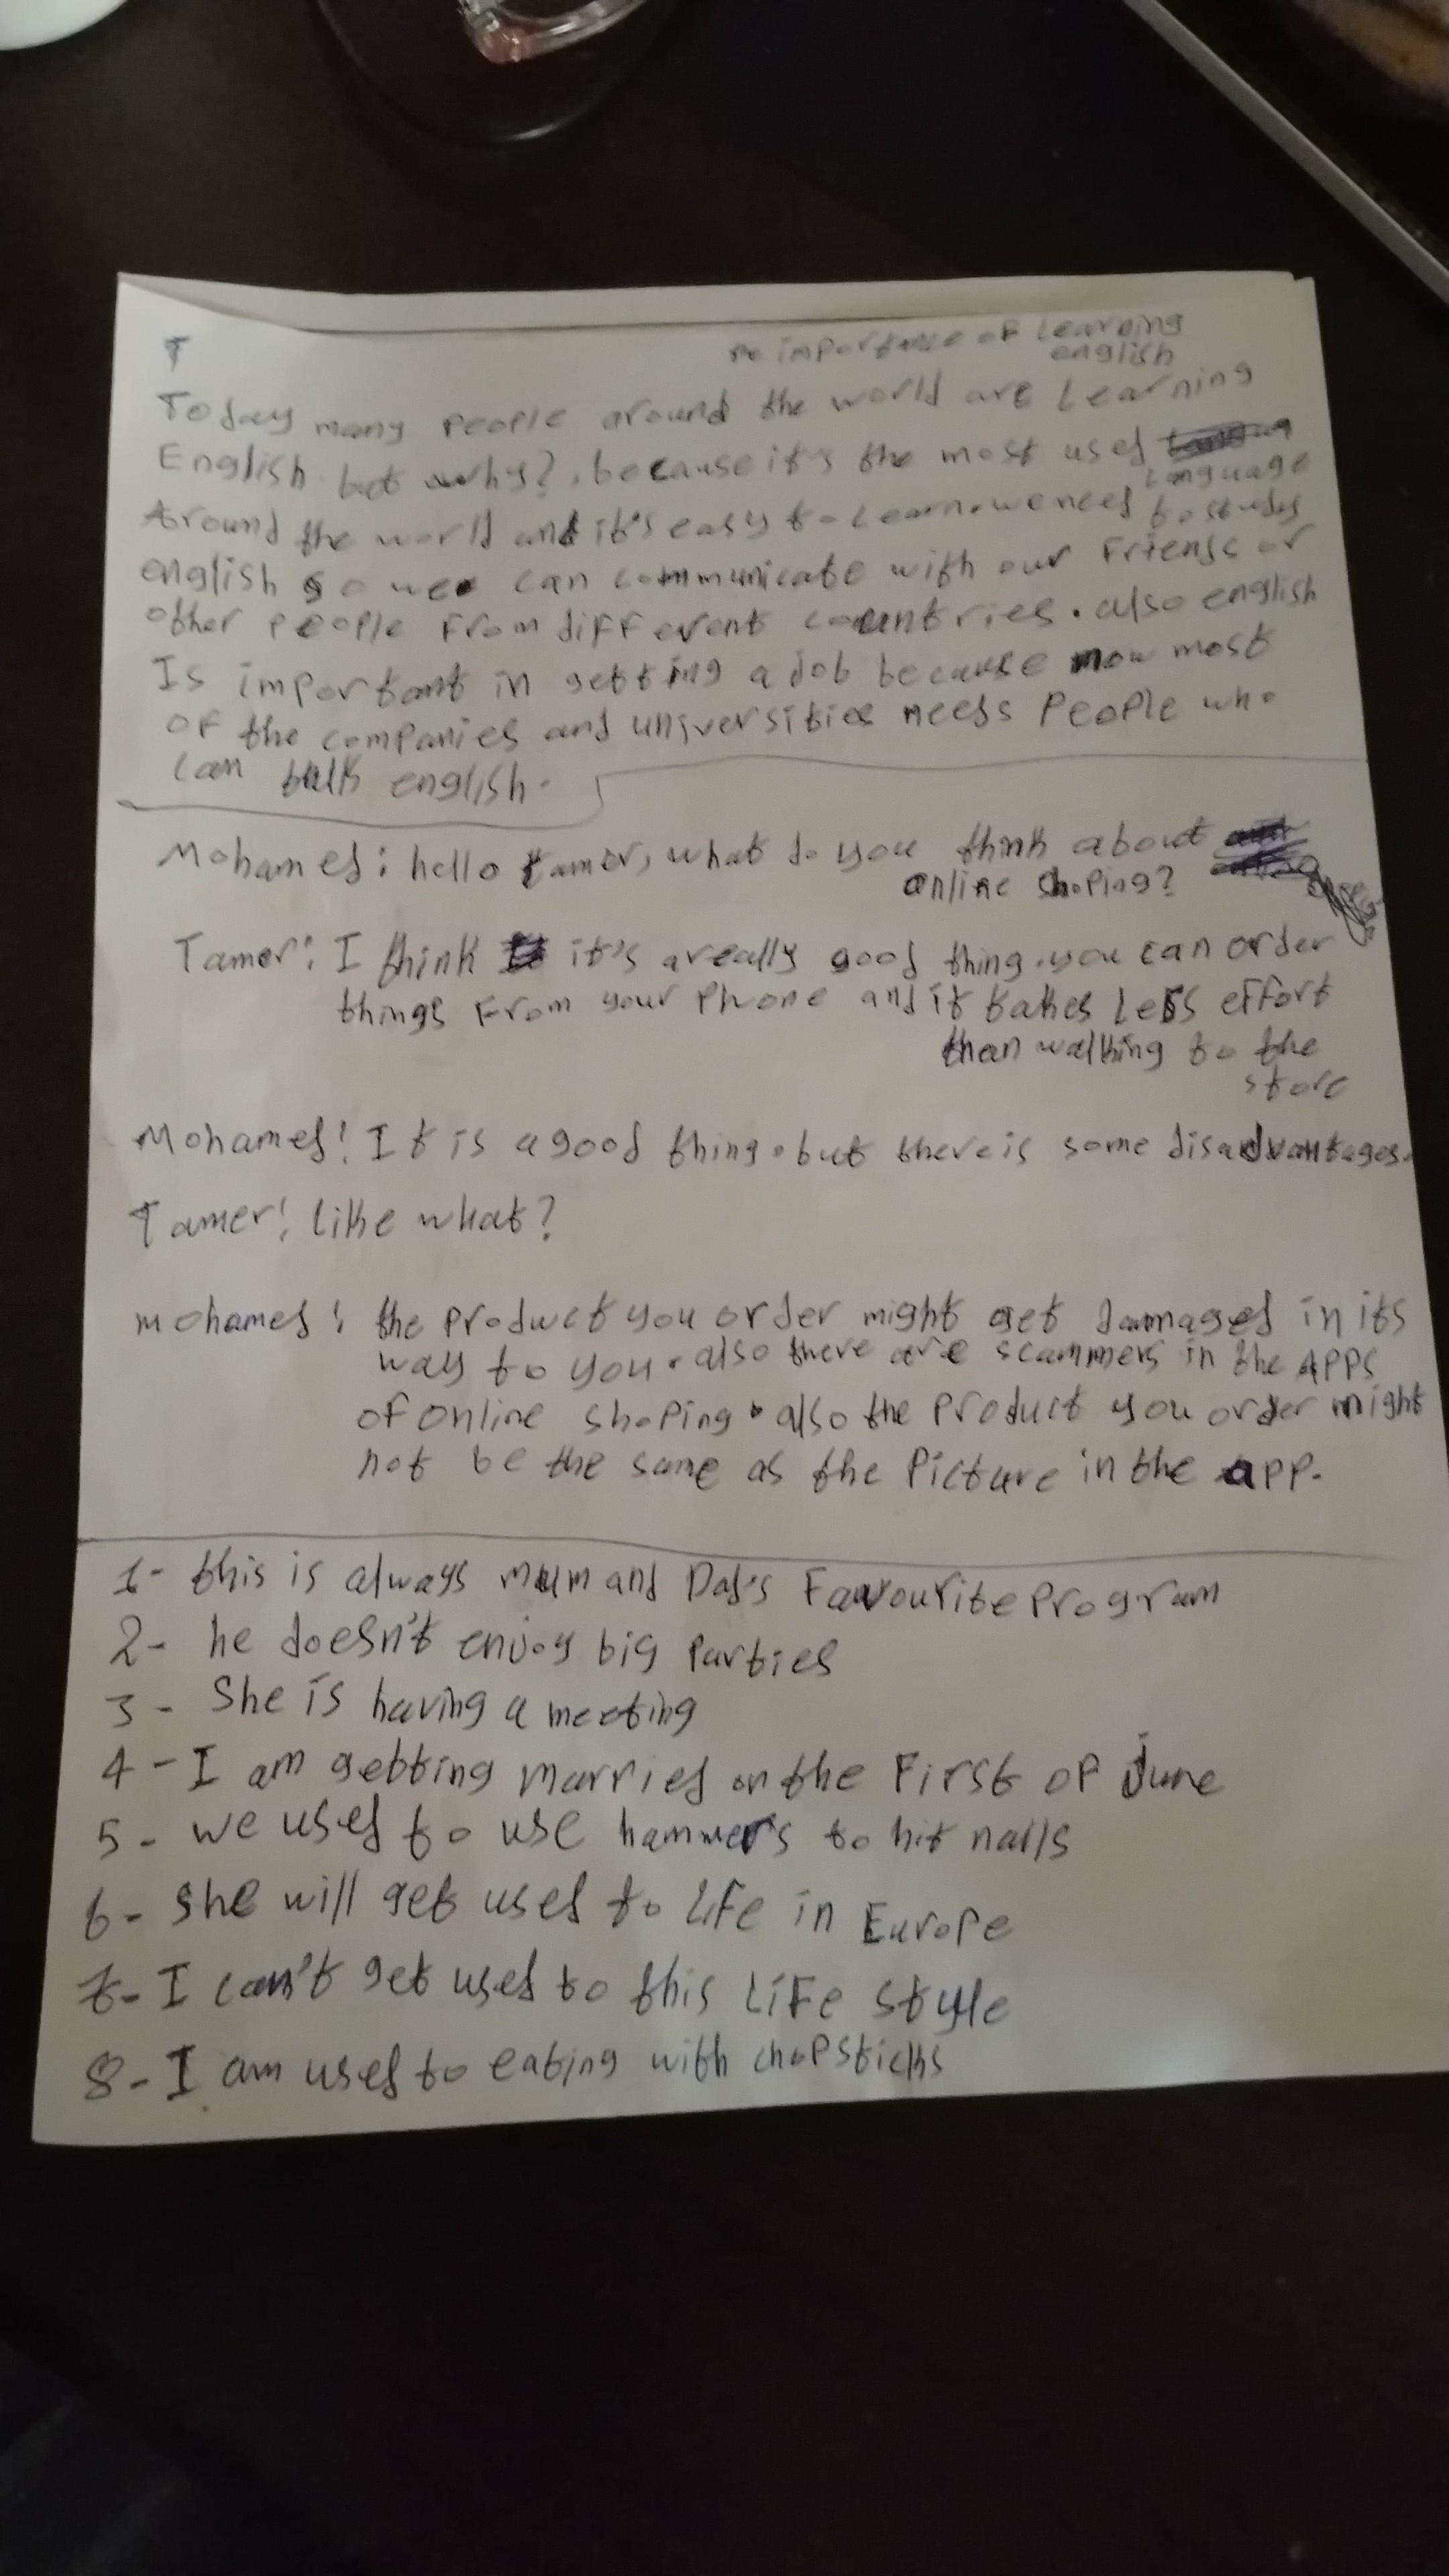 The importance of Learning
english
Today many people around the world are Learning
English but why?, because it's the most used
Language
Around the world and it's easy to Learn. we need to study
english so we can communicate with our Friends or
other people From different countries. also english
Is important in getting a job because now most
of the companies and universities needs People who
can talk english.
Mohamed: hello tamer, what do you think about
online shoping?
Tamer: I think it's a really good thing. you can order
things From your Phone and it takes Less effort
than walking to the
store
Mohamed: It is a good thing. but there is some disadvantages.
Tamer: Like what?
mohamed: the product you order might get damaged in its
way to you. also there are scammers in the APPS
of online shoping. also the product you order might
not be the same as the Picture in the app.
1- this is always mum and Dad's Favourite Program
2- he doesn't enjoy big Parties
3- She is having a meeting
4- I am getting married on the First of June
5- we used to use hammers to hit nails
6- she will get used to Life in Europe
7- I can't get used to this LiFe style
8- I am used to eating with chopsticks